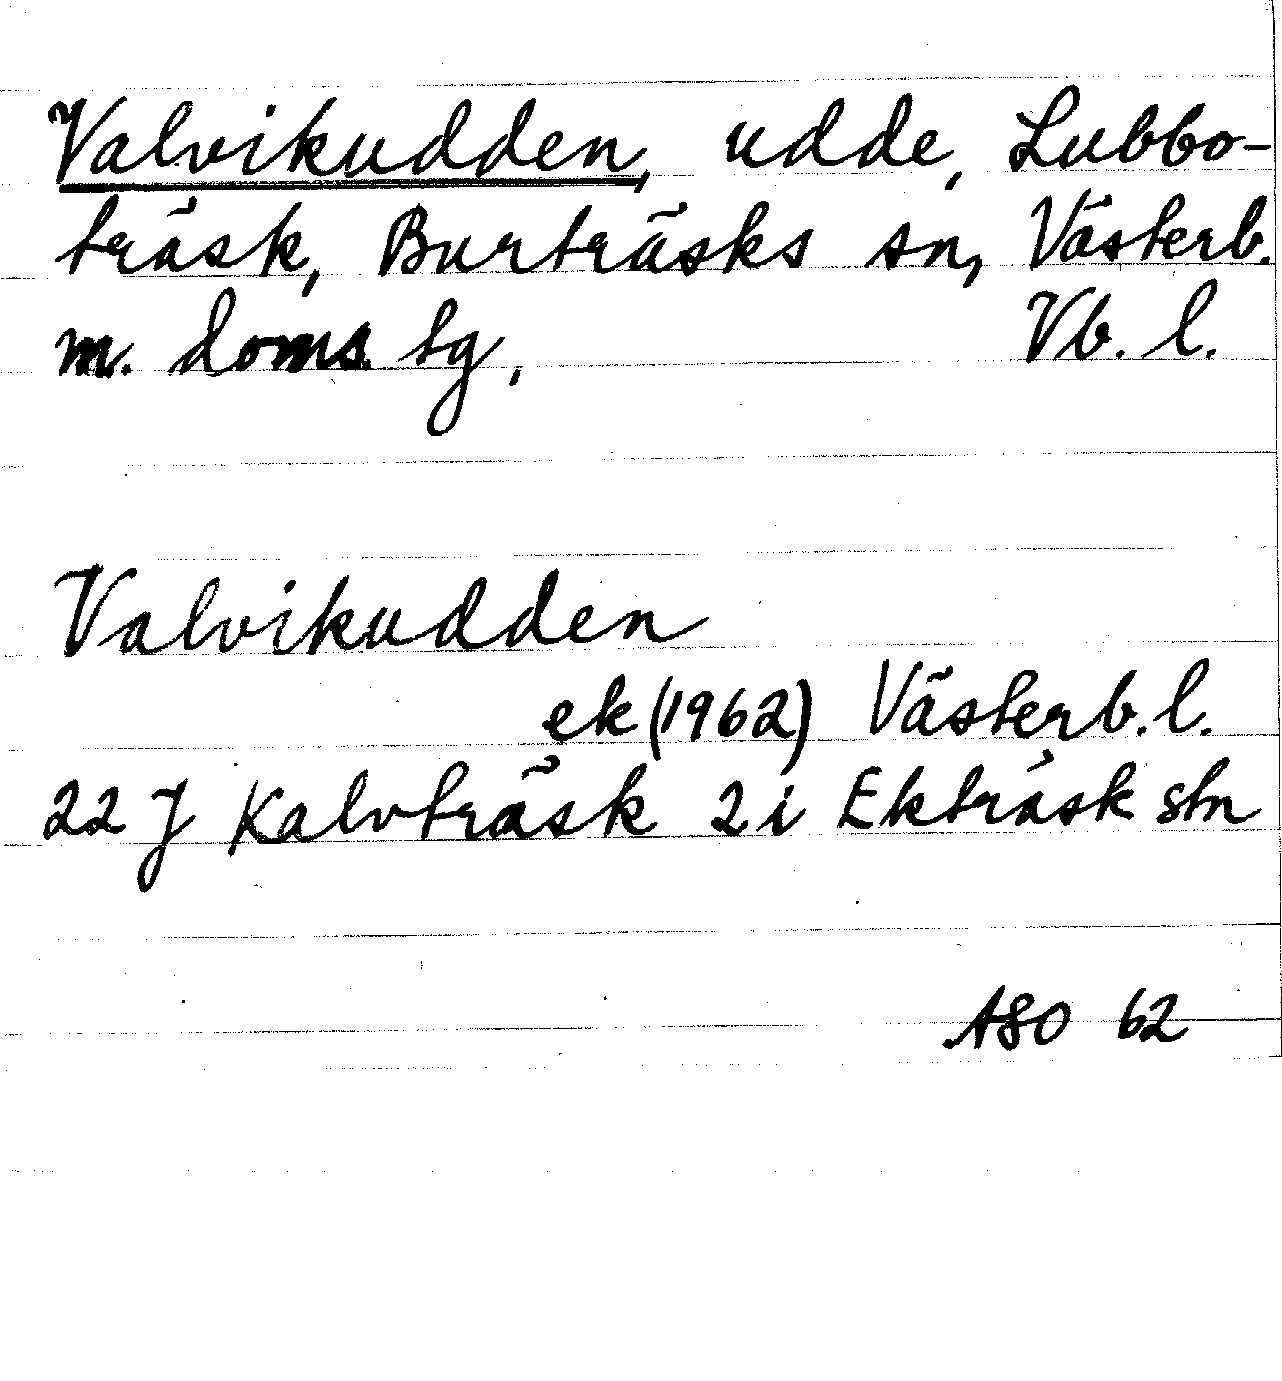 Valvikudden, udde, Lubbo-
träsk, Burträsks sn, Västerb.
m. doms. tg, Vb. l.
Valvikudden
ek (1962) Västerb. l.
22 J Kalvträsk 2 i Ekträsk stn
ASO 62